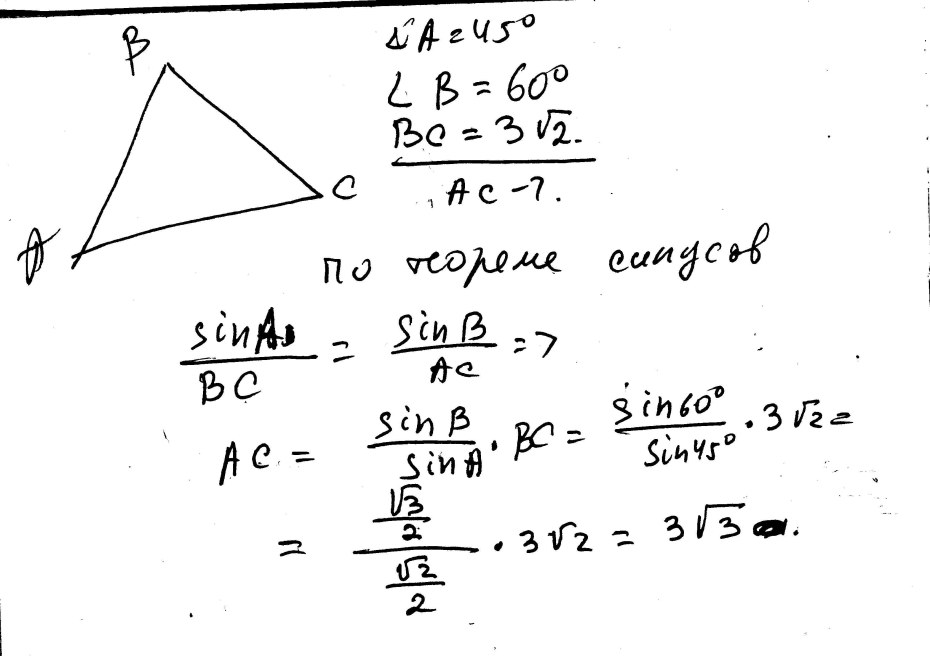 B
∠A = 45°
∠B = 60°
BC = 3√2.
C
AC - ?.
A
по теореме синусов
sinA/BC = sinB/AC =>
AC = sinB/sinA · BC = sin60°/sin45° · 3√2 =
= (√3/2)/(√2/2) · 3√2 = 3√3.